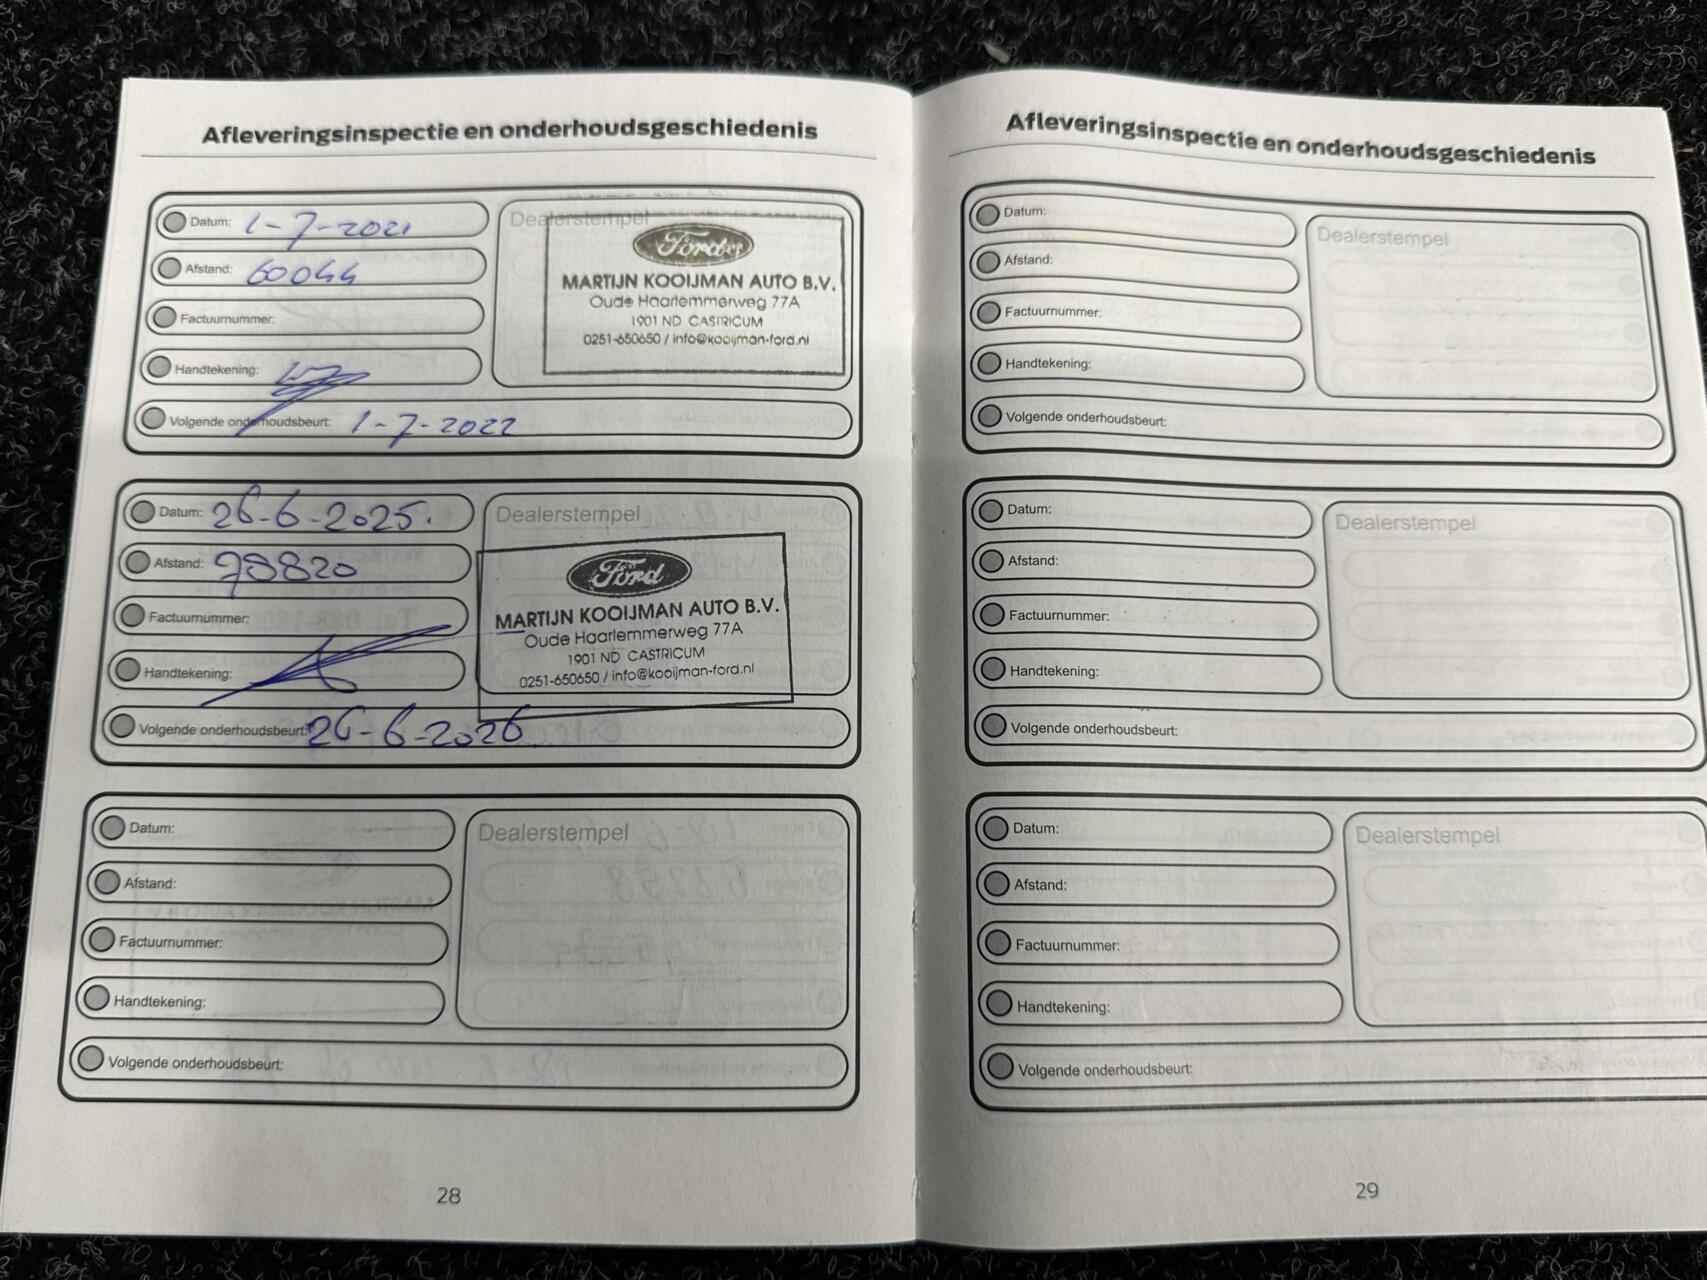 Afleveringsinspectie en onderhoudsgeschiedenis
Datum: 1-7-2021
Afstand: 60044
Factuurnummer:
Handtekening:
Volgende onderhoudsbeurt: 1-7-2022
Dealerstempel
Ford
MARTIJN KOOIJMAN AUTO B.V.
Oude Haarlemmerweg 77A
1901 ND CASTRICUM
0251-650650 / info@kooijman-ford.nl
Datum: 26-6-2025.
Afstand: 78820
Factuurnummer:
Handtekening:
Volgende onderhoudsbeurt: 26-6-2026
Dealerstempel
Ford
MARTIJN KOOIJMAN AUTO B.V.
Oude Haarlemmerweg 77A
1901 ND CASTRICUM
0251-650650 / info@kooijman-ford.nl
Datum:
Afstand:
Factuurnummer:
Handtekening:
Volgende onderhoudsbeurt:
Dealerstempel
28
Afleveringsinspectie en onderhoudsgeschiedenis
Datum:
Afstand:
Factuurnummer:
Handtekening:
Volgende onderhoudsbeurt:
Dealerstempel
Datum:
Afstand:
Factuurnummer:
Handtekening:
Volgende onderhoudsbeurt:
Dealerstempel
Datum:
Afstand:
Factuurnummer:
Handtekening:
Volgende onderhoudsbeurt:
Dealerstempel
29